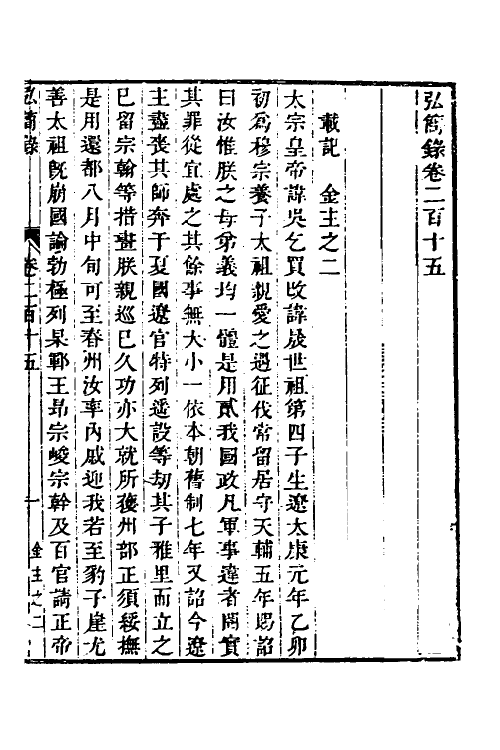 弘簡錄卷二百十五
載記　金主之二
太宗皇帝諱吳乞買改諱晟世祖第四子生遼太康元年乙卯
初爲穆宗養子太祖親愛之遇征伐常留居守天輔五年賜詔
曰汝惟朕之母弟義均一體是用貳我國政凡軍事違者閱實
其罪從宜處之其餘事無大小一依本朝舊制七年又詔今遼
主盡喪其師奔于夏國遼官特列遥設等劫其子雅里而立之
已留宗翰等措畫朕親巡已久功亦大就所獲州部正須綏撫
是用還都八月中旬可至春州汝率內戚迎我若至豹子崖尤
善太祖既崩國論勃極列杲鄆王昂宗峻宗幹及百官請正帝
弘簡錄　卷二百十五　一　金主之二